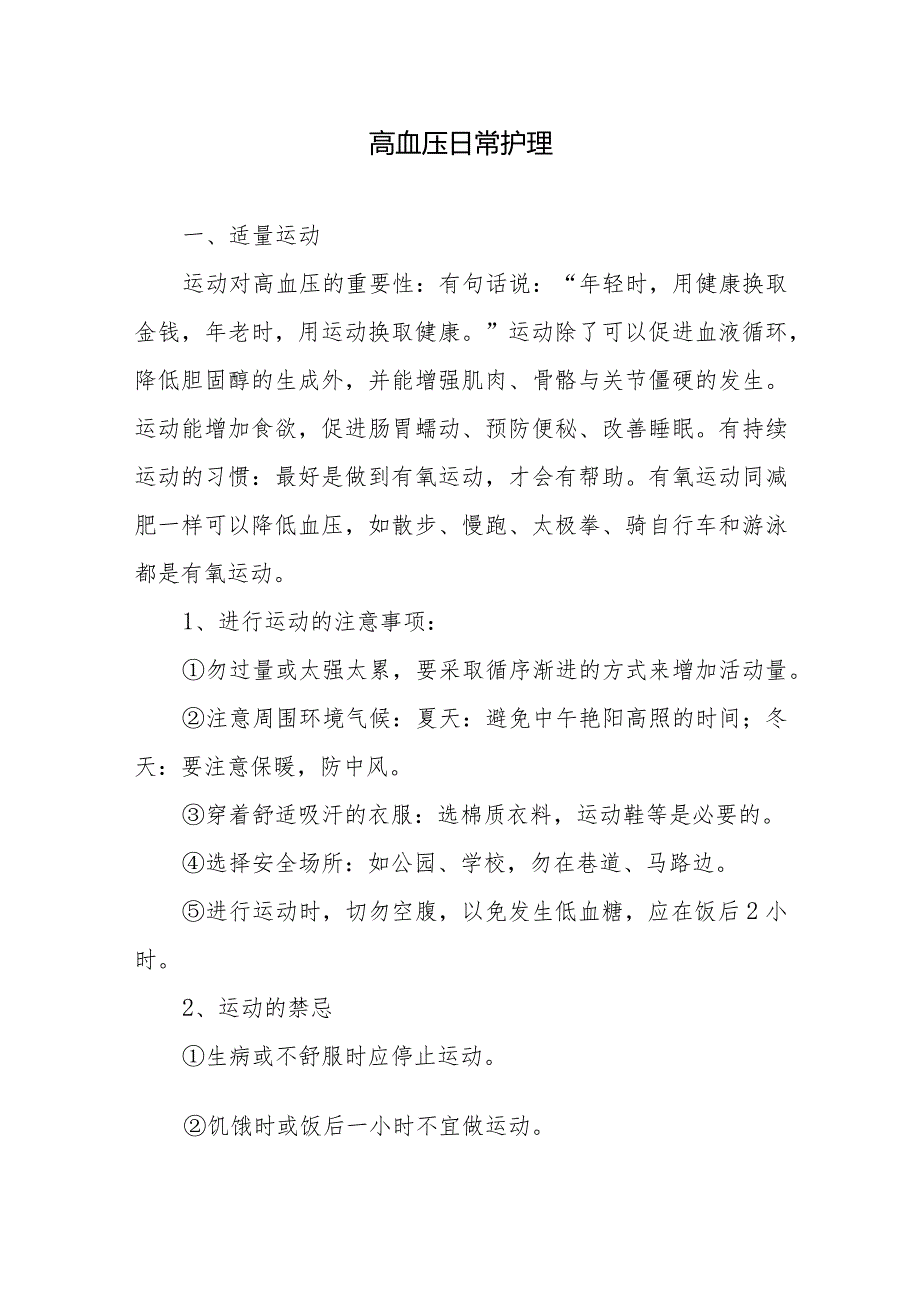 高血压日常护理
一、适量运动
运动对高血压的重要性：有句话说：“年轻时，用健康换取
金钱，年老时，用运动换取健康。”运动除了可以促进血液循环，
降低胆固醇的生成外，并能增强肌肉、骨骼与关节僵硬的发生。
运动能增加食欲，促进肠胃蠕动、预防便秘、改善睡眠。有持续
运动的习惯：最好是做到有氧运动，才会有帮助。有氧运动同减
肥一样可以降低血压，如散步、慢跑、太极拳、骑自行车和游泳
都是有氧运动。
1、进行运动的注意事项：
①勿过量或太强太累，要采取循序渐进的方式来增加活动量。
②注意周围环境气候：夏天：避免中午艳阳高照的时间；冬
天：要注意保暖，防中风。
③穿着舒适吸汗的衣服：选棉质衣料，运动鞋等是必要的。
④选择安全场所：如公园、学校，勿在巷道、马路边。
⑤进行运动时，切勿空腹，以免发生低血糖，应在饭后2小
时。
2、运动的禁忌
①生病或不舒服时应停止运动。
②饥饿时或饭后一小时不宜做运动。